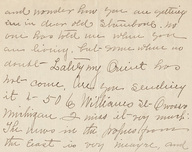 and wonder how you are getting
on in dear old Stamboul. No
one has told me where you
are living, but some where no
doubt my Orient has
not come, are you sending
it to 50 E Williams St
Michigan I miss it very much.
The news in the papers from
the East is very meagre, and